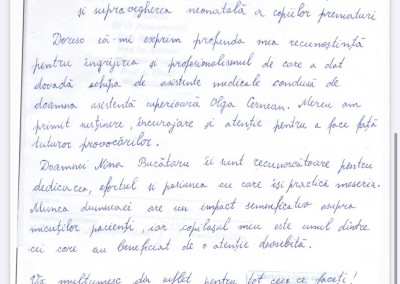 și supravegherea neonatală a copiilor prematuri
Doresc să-mi exprim profunda mea recunoștință
pentru îngrijirea și profesionalismul de care a dat
dovadă echipa de asistente medicale condusă de
doamna asistentă superioară Olga Cernean. Mereu am
primit susținere, încurajare și atenție pentru a face față
tuturor provocărilor.
Doamnei Nina Bucătaru îi sunt recunoscătoare pentru
dedicarea, efortul și pasiunea cu care își practică meseria.
Munca dumneaei are un impact semnificativ asupra
micuților pacienți, iar copilașul meu este unul dintre
cei care au beneficiat de o atenție deosebită.
Vă mulțumesc din suflet pentru tot ceea ce faceți!